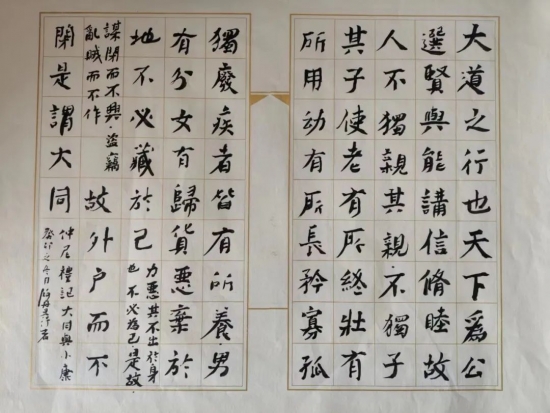 大道之行也天下爲公
選賢與能講信脩睦故
人不獨親其親·不獨子
其子使老有所終壯有
所用幼有所長矜寡孤
獨廢疾者皆有所養男
有分女有歸貨惡棄於
地不必藏於己
力惡其不出於身
也不必為己是故·
謀閉而不興·盜竊
亂賊而不作
故外户而不
閉是謂大同
仲尼禮記大同與小康
癸卯之冬日